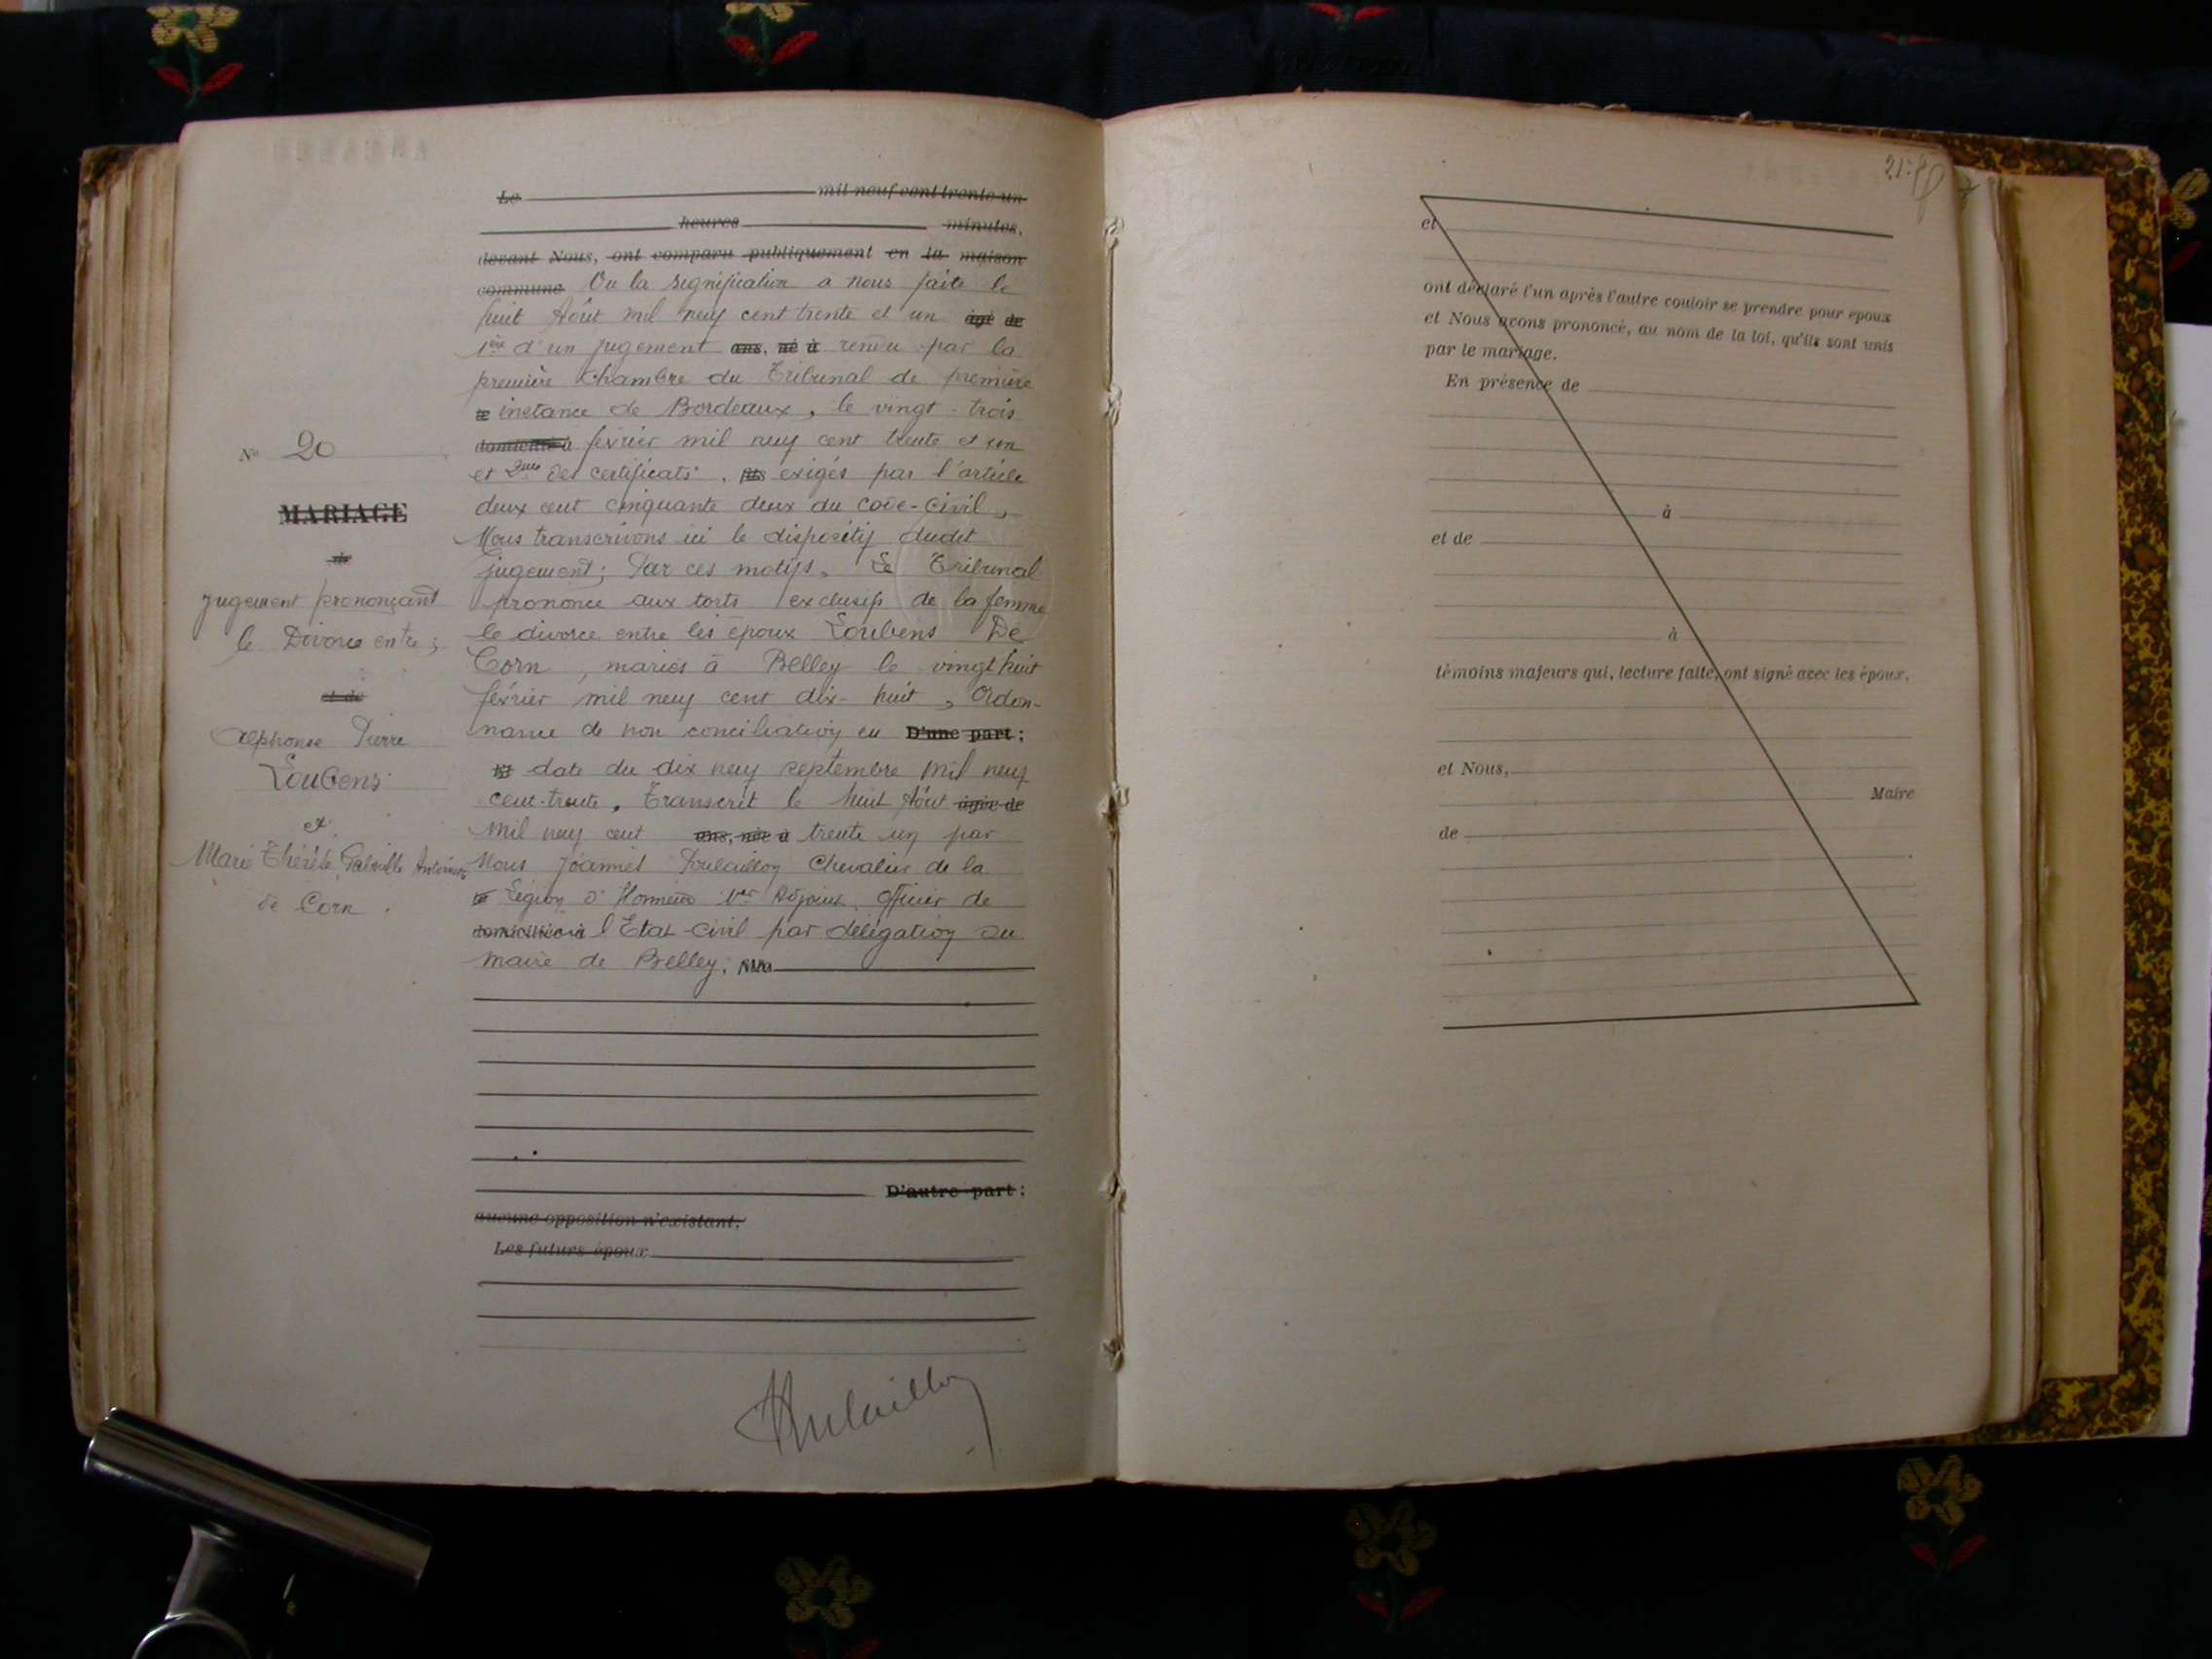 Le mil neuf cent trente-un
heures minutes,
devant Nous, ont comparu publiquement en la maison
commune Vu la signification a nous faite le
huit Août mil neuf cent trente et un âgé de
1ère d'un jugement ans, né à rendu par la
première Chambre du Tribunal de première
le instance de Bordeaux, le vingt-trois
domicilié à février mil neuf cent trente et un
et 2me des certificats, fils exigés par l'article
deux cent cinquante deux du code-civil,
Nous transcrivons ici le dispositif dudit
jugement; Par ces motifs. Le Tribunal
prononce aux torts exclusifs de la femme
le divorce entre les époux Loubens De
Corn, mariés à Belley le vingt huit
février mil neuf cent dix-huit, Ordon-
nance de non conciliation en D'une part;
et date du dix neuf septembre mil neuf
cent-trente. Transcrit le huit Août âgée de
mil neuf cent ans, née à trente un par
Nous Joannès Poulaillon Chevalier de la
le Légion d'Honneur 1er Adjoint, officier de
domiciliée à l'Etat-civil par délégation du
maire de Belley, fille
D'autre part;
aucune opposition n'existant.
Les futurs époux
No 20
MARIAGE
de
Jugement prononçant
le Divorce entre;
et de
Alphonse Pierre
Loubens
et
Marie Thérèse, Gabrielle Antoinette
de Corn.
Poulaillon
et
ont déclaré l'un après l'autre vouloir se prendre pour époux
et Nous avons prononcé, au nom de la loi, qu'ils sont unis
par le mariage.
En présence de
à
et de
à
témoins majeurs qui, lecture faite, ont signé avec les époux.
et Nous,
Maire
de